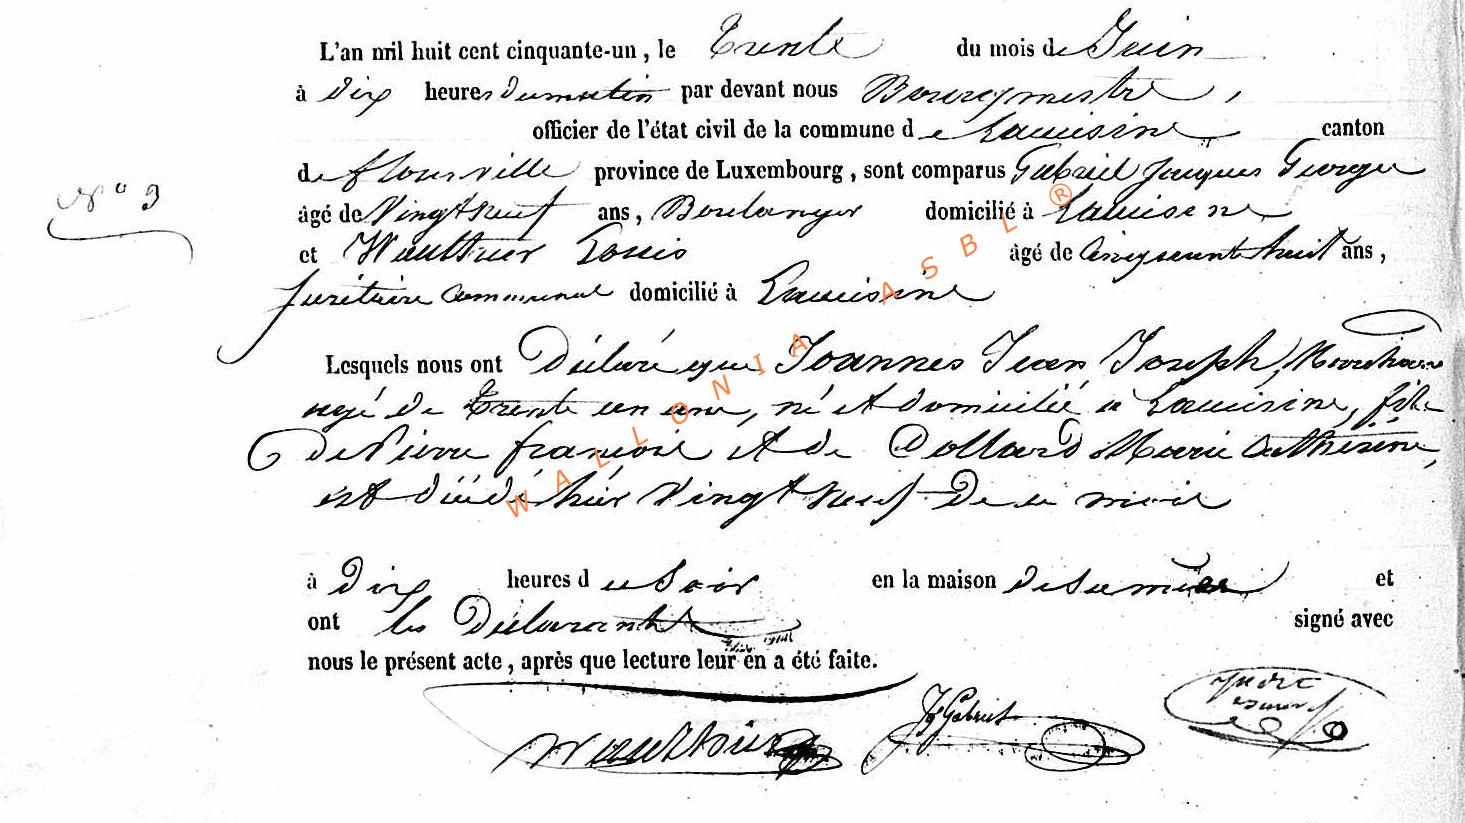 L'an mil huit cent cinquante-un, le Trente du mois de Juin
à dix heures du matin par devant nous Bourgmestre,
officier de l'état civil de la commune de Lacuisine canton
de florenville province de Luxembourg, sont comparus Gabriel Jacques George
N° 3
âgé de Vingt neuf ans, Boulanger domicilié à Lacuisine
et Wauthier Louis âgé de cinquante huit ans,
Secrétaire Communal domicilié à Lacuisine
Lesquels nous ont Déclaré que Joannes Jean Joseph,
agé de Trente un ans, né et domicilié a Lacuisine, fils
de Pierre françois et de Dollard Marie Catherine,
est décédé hier Vingt neuf de ce mois
à Dix heures du Soir en la maison de sa mère et
ont les Déclarants signé avec
nous le présent acte, après que lecture leur en a été faite.
Wauthier JGabriel
WALLONIA ASBL ®